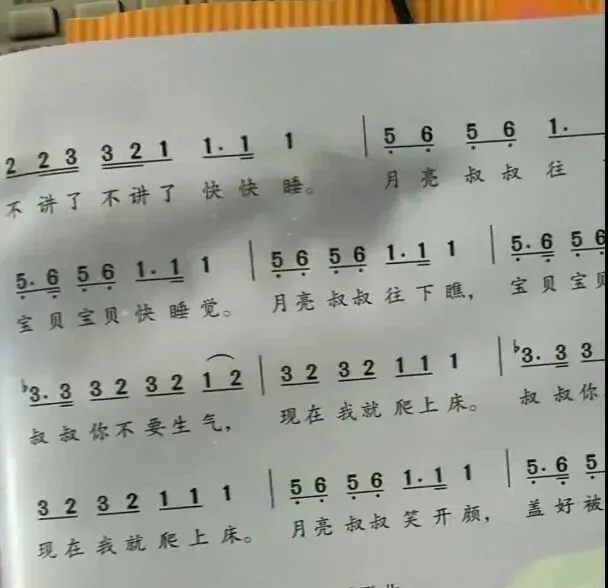 2 2 3 3 2 1 1· 1 1 | 5 6 5 6 1·
不讲了不讲了快快睡。 月亮叔叔往
5· 6 5 6 1· 1 1 | 5 6 5 6 1· 1 1 | 5· 6 5 6
宝贝宝贝快睡觉。 月亮叔叔往下瞧， 宝贝宝贝
♭3· 3 3 2 3 2 1 2 | 3 2 3 2 1 1 1 | ♭3· 3 3
叔叔你不要生气， 现在我就爬上床。 叔叔你
3 2 3 2 1 1 1 | 5 6 5 6 1· 1 1 | 5· 6 5
现在我就爬上床。 月亮叔叔笑开颜， 盖好被